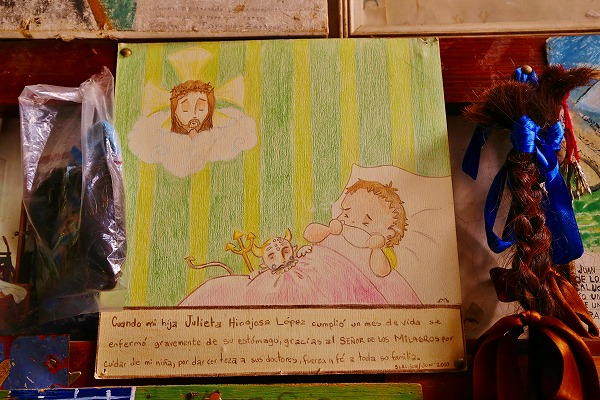 Cuando mi hija Julieta Hinojosa López cumplió un mes de vida se
enfermó gravemente de su estómago, gracias al SEÑOR DE LOS MILAGROS por
cuidar de mi niña, por dar certeza a sus doctores, fuerza y fé a toda su familia.
JUAN
DE LO
SALUC